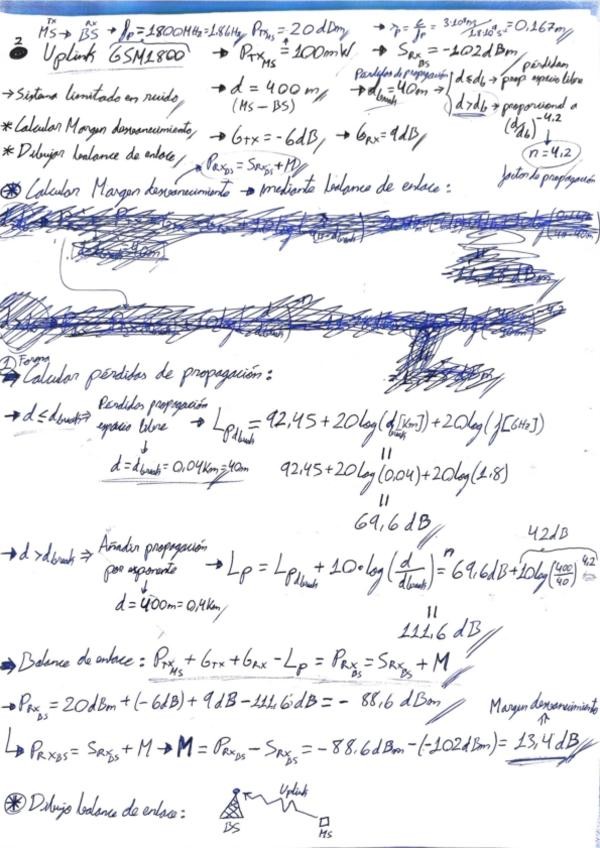 2 Uplink GSM1800
MS → BS → fp = 1800MHz = 1.8GHz PTX MS = 20 dBm → λp = c/fp = 3·10⁸ m/s / 1.8·10⁹ s⁻¹ = 0,167 m
→ PTX MS = 100mW → SRX BS = -102 dBm
→ Sistema limitado en ruido → d = 400 m (MS - BS)
Perdidas de propagación → dbreak = 40m → d ≤ db → prop espacio libre
d > db → proporcional a (d/db)^-4,2
n = 4,2 factor de propagación
* Calcular Margen desvanecimiento
* Dibujar balance de enlace → GTX = -6dB → GRX = 9dB
PRX BS = SRX BS + M
* Calcular Margen desvanecimiento → mediante balance de enlace:
1 Forma
→ Calcular pérdidas de propagación:
→ d ≤ dbreak ⇒ Perdidas propagación espacio libre → Lp dbreak = 92,45 + 20log(dbreak[Km]) + 20log(f[GHz])
d = dbreak = 0,04Km = 40m
= 92,45 + 20log(0,04) + 20log(1,8)
= 69,6 dB
→ d > dbreak ⇒ Añadir propagación por exponente → Lp = Lp dbreak + 10·log(d/dbreak)^n = 69,6dB + 10log(400/40)^4,2 =
42dB
d = 400m = 0,4Km
= 111,6 dB
→ Balance de enlace: PTX MS + GTX + GRX - Lp = PRX BS = SRX BS + M
→ PRX BS = 20dBm + (-6dB) + 9dB - 111,6dB = - 88,6dBm
Margen desvanecimiento
↳ PRX BS = SRX BS + M → M = PRX BS - SRX BS = -88,6dBm - (-102dBm) = 13,4dB
* Dibujo balance de enlace:
Uplink
BS
MS